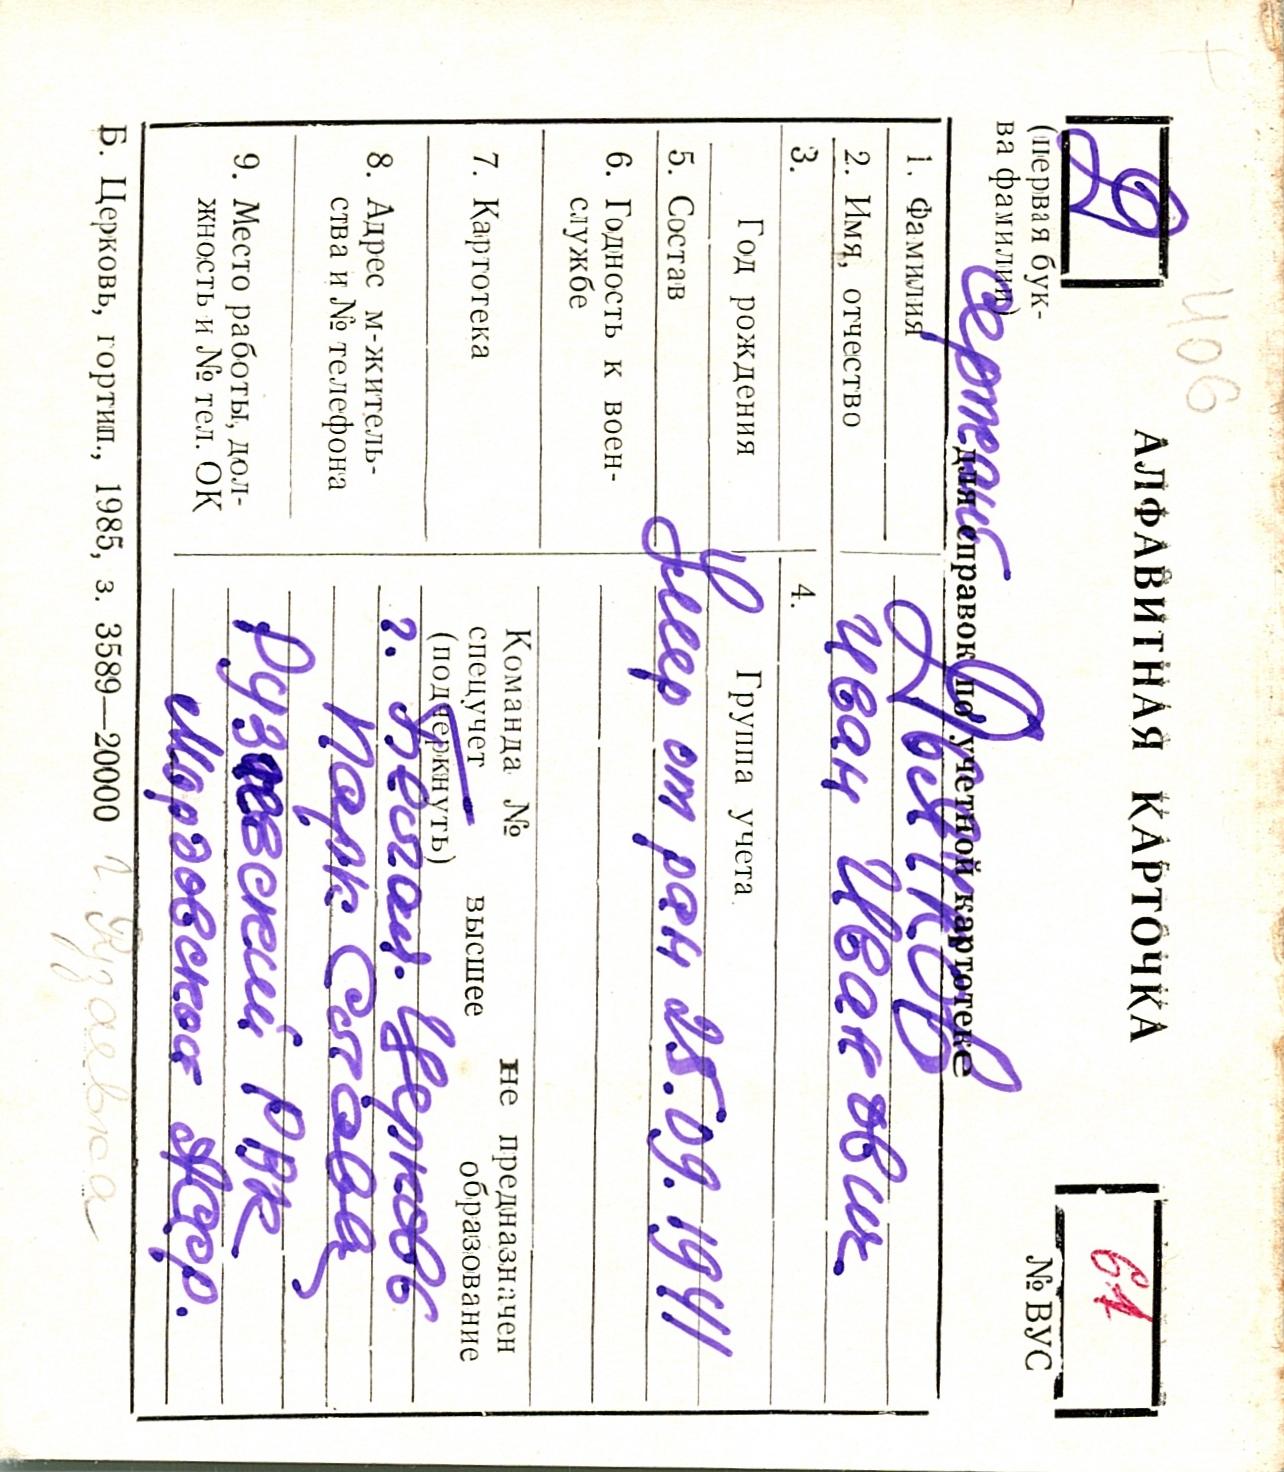 406
АЛФАВИТНАЯ КАРТОЧКА
Д
61
(первая бук-
ва фамилии)
№ ВУС
для справок по учетной картотеке
сержант
1. Фамилия
2. Имя, отчество Иван Иванович
3. Год рождения
4. Группа учета
5. Состав Умер от ран 25.09.1941
6. Годность к воен-
службе
7. Картотека
Команда № не предназначен
спецучет высшее образование
(подчеркнуть)
8. Адрес м-житель-
ства и № телефона
г. Белая Церковь
парк
9. Место работы, дол-
жность и № тел. ОК
Рузаевский РВК
Мордовской АССР.
Б. Церковь, гортип., 1985, з. 3589—20000
г. Рузаевка